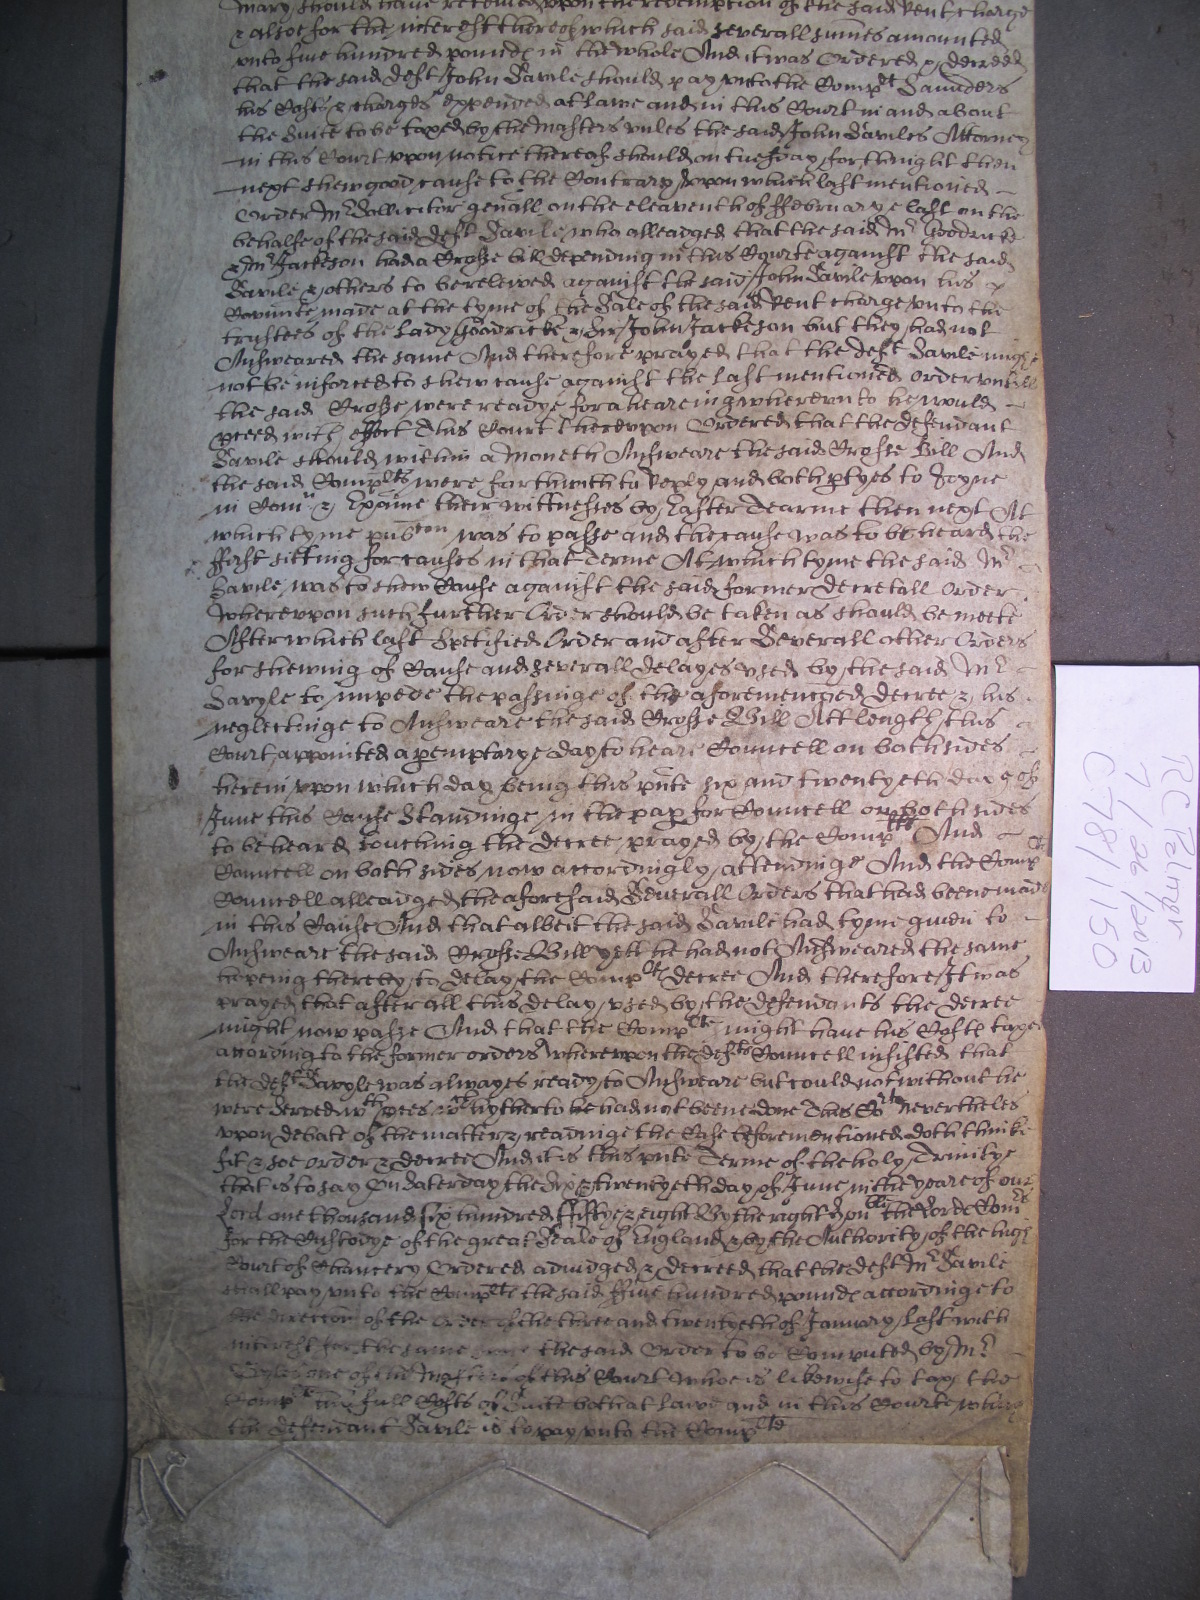 Mary should have received upon the redemption of the said Rent charge
& alsoe for the interest thereof which said severall summes amounted
unto five hundred pounds in the whole And it was Ordered & decreed
that the said deft John Savile should pay unto the Complt Saunders
his Costs & charges expended at lawe and in this Court in and about
the Suite to be taxed by the Master unles the said John Saviles Attorney
in this Court upon notice thereof should on tuesday fortnight then
next shew good cause to the Contrary Upon which last mentioned
Order Mr Sollicitor genall on the eleaventh of ffebruarye last on the
behalfe of the said deft Savile who alleadged that the said Mr Goodricke
& Mr Jackson had a Crosse bill depending in this Courte against the said
Savile & others to be releived against the said John Savile upon his
Covunte made at the tyme of the Sale of the said Rent charge unto the
trustees of the Lady Goodricke & Sir John Jackson but they had not
Answeared the same And therefore prayed that the deft Savile might
not be inforced to shew cause against the last mentioned order untill
the said Crosse were readye for a heareing whereunto he would
pceed with effect This Court thereupon Ordered that the defendant
Savile should within a Moneth Answeare the said Crosse Bill And
the said Complts were forthwith to Reply and both ptyes to Joyne
in Com & Exaine their wittnesses by Easter Tearme then next At
which tyme publicon was to passe and the cause was to be heard the
ffirst sitting for causes in that Terme At which tyme the said Mr
Savile was to shew Cause against the said former decretall Order
Whereupon such further Order should be taken as should be meete
After which last Specified Order and after Severall other Orders
for shewing of Cause and severall delayes used by the said Mr
Savyle to impede the passinge of the aforemenconed decree & his
neglectinge to Answeare the said Crosse Bill Att length this
Court appointed a pemptorye day to heare Councell on both sides
herein upon which day being this pnte six and twentyeth daye of
June this Cause Standinge in the pap for Councell on both sides
to be heard touching the decree prayed by the Complts And
Councell on both sides now accordingly attendinge And the Complts
Councell alleadged the aforesaid Severall Orders that had beene made
in this Cause And that albeit the said Savile had tyme given to
Answeare the said Crosse Bill yett he had not Answeared the same
hopeing thereby to delay the Complts decree And therefore It was
prayed that after all this delay used by the defendants the decree
might now passe And that the Complts might have his Costs taxed
according to the former orders whereupon the defts Councell insisted that
the deft Savyle was alwayes ready to Answeare but could not without he
were served wth pces wch hytherto he had not beene done This Court nevertheles
upon debate of the matter & readinge the Case beforementioned doth thinke
fit & soe order & decree And it is this pnte Terme of the holy Trinitye
that is to say On Saterday the six & twentyeth day of June in the yeare of our
Lord one thousand six hundred fiftye & eight By the right honble the Lords Comrs
for the Custodye of the great Seale of England & by the Authority of the high
Court of Chancery Ordered adiudged & decreed that the deft Mr Savile
shall pay unto the Complts the said ffive hundred pounds accordinge to
the direccon of the order of the three and twentyeth of January last with
interest for the same the said Order to be Computed by Mr
one of the Masters of this Court whoe is likewise to tax the
Complts full Costs of Suite both at lawe and in this Courte which
the defendant Savile is to pay unto the Complts
RC Palmer
7/26/2013
C78/1150